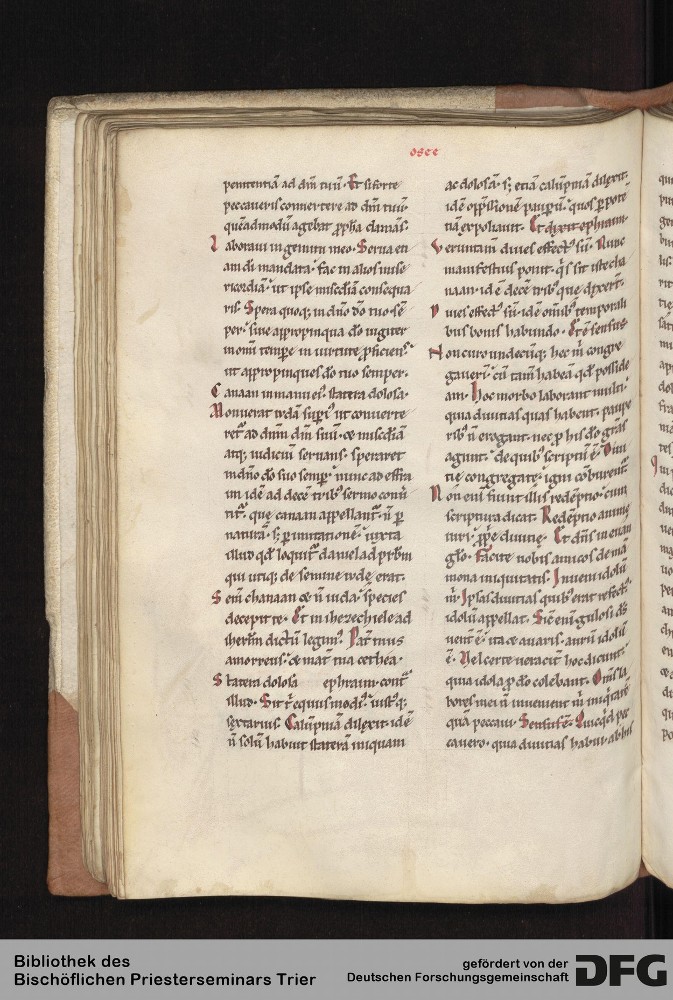 osee
penitentiā ad dm̄ tuū. Et si forte
peccaveris convertere ad dm̄ tuū.
quēadmodū agebat ꝓph̄a clamās.
Laboravi in gemitu meo. Serva etī
am dī mandata. fac in alios mise
ricordiā. ut ipse misc̄diā consequa
ris. Spera quoq; in dn̄o dō tuo sē
per. sive appropinqua dō iugiter
in om̄i tempe in virtute ꝓficiens.
ut appropinques dō tuo semper.
Canaan in manu ei⁹ statera dolosa.
Monuerat iudā supi⁹ ut converte
retᷣ ad dnm̄ dm̄ suū. & misc̄diā
atq; iudiciū servans. speraret
in dn̄o dō suo semp. nunc ad effra
im id ē ad decē trib⁹ sermo com̄u
titᷣ. que canaan appellantᷣ. n̄ p
naturā. s; p imitationē. iuxta
illud qd̄ loquitᷣ daniel ad p̄rbm̄
qui utiq; de semine iude erat.
Semē chanaan & n̄ iuda. species
decepit te. Et in ihezechiele ad
iherlm̄ dictū legim⁹. Pat̄ tuus
amorreus. & mat̄ tua cethea.
Statera dolosa ephraim. cont̄
illud. Sit t̄ equus modi⁹. iust⁹q;
sextarius. Calūpniā dilexit. id ē
n̄ solū habuit staterā iniquam
ac dolosā. s; etiā calūpniā dilexit.
id ē opp̄ssionē paupū. quos p potē
tiā expoliavit. Et dixit ephraim.
Veruntam̄ dives effect⁹ sū. Nunc
manifestius ponit. qs sit iste cha
naan. id ē decē trib⁹ que dixer̄t.
Dives effect⁹ sū. id ē om̄ib⁹ temporali
bus bonis habundo. Et ē sensus
Non curo undecūq; hec m̄ congre
gaverī. cū tam̄ habeā qd̄ posside
am. Hoc morbo laborant multi.
quia divitias quas habent. paupe
rib⁹ n̄ erogant. nec p his dō grās
agunt. de quib⁹ scriptū ē. Divi
tie congregate. igni cōburentᷣ.
Non eni fiunt illis redēptio. cum
scriptura dicat. Redēptio anime
viri. ꝓprie divitie. Et dn̄s in evan
glō. Facite vobis amicos de mā
mona iniquitatis. Inveni idolū
m̄. Ipsas divitias quib⁹ erat refect⁹.
idolū appellat. Sic enī gulosi d̄s
vent̄ ē. ita & avaris. aurū idolū
ē. Vel certe veraciť hoc dicunt.
quia idola p dō colebant. Om̄s la
bores mei n̄ invenient m̄ iniqtatē
quā peccavi. Sensus ē. Quicqd̄ pec
cavero. quia divitias habui. ab his
Bibliothek des
Bischöflichen Priesterseminars Trier
gefördert von der
Deutschen Forschungsgemeinschaft
DFG